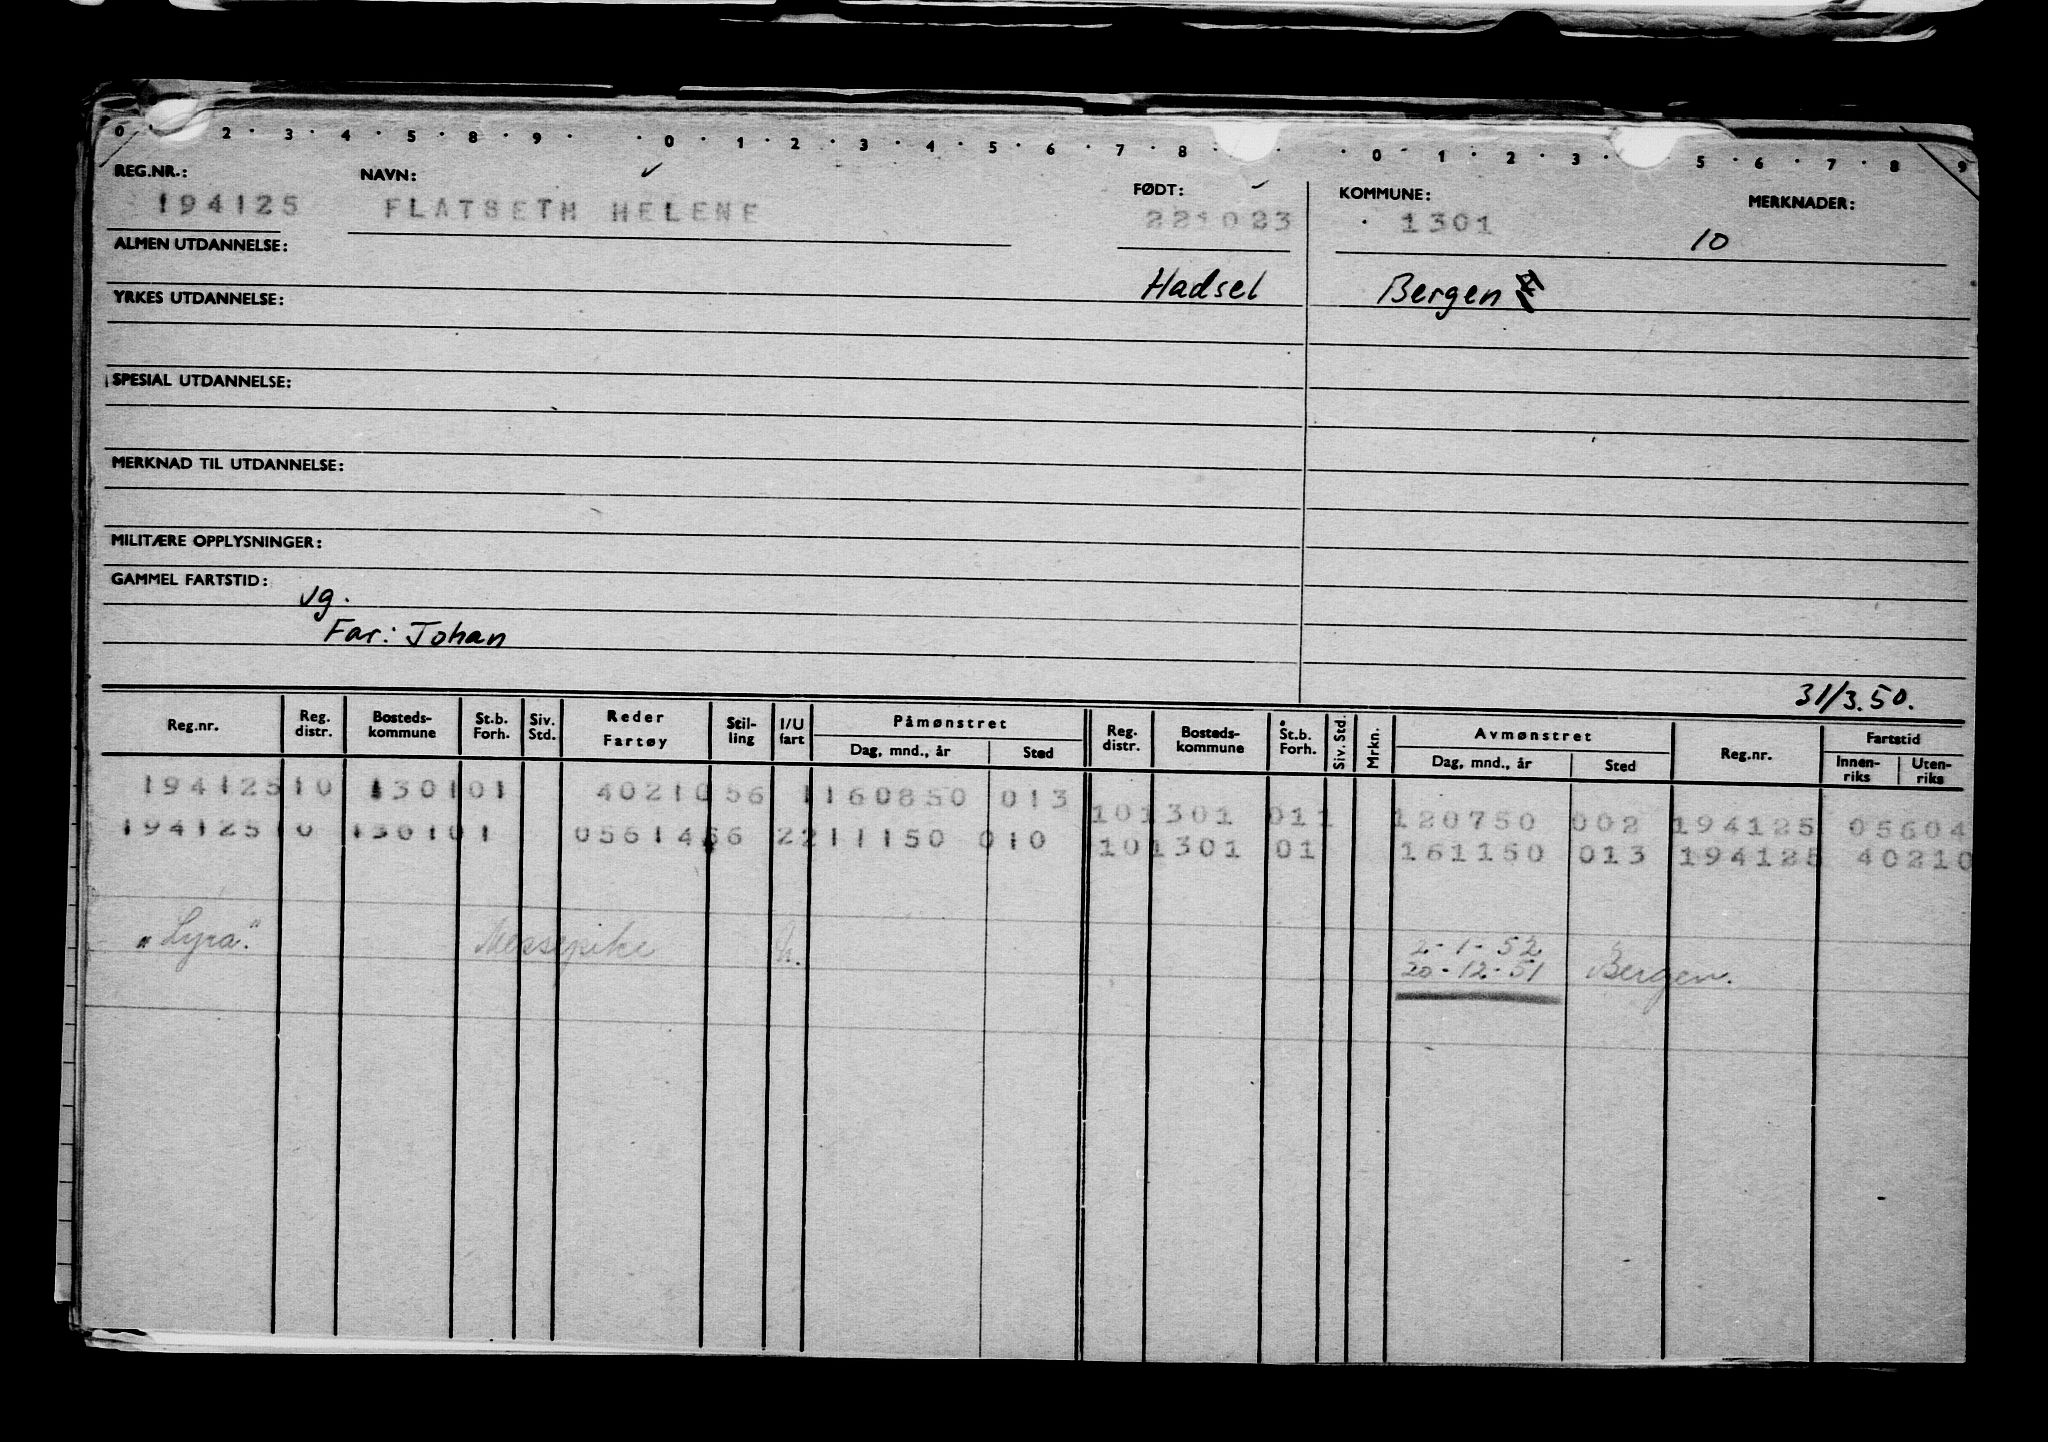 0 · 2 · 3 · 4 · 5 · 8 · 9 · · 0 · 1 · 2 · 3 · 4 · 5 · 6 · 7 · 8 · · 0 · 1 · 2 · 3 · 5 · 6 · 7 · 8 · 9
REG.NR.: NAVN: FØDT: KOMMUNE: MERKNADER:
194125 FLATSETH HELENE 221023 1301 10
ALMEN UTDANNELSE:
Hadsel Bergen
YRKES UTDANNELSE:
SPESIAL UTDANNELSE:
MERKNAD TIL UTDANNELSE:
MILITÆRE OPPLYSNINGER:
GAMMEL FARTSTID:
vg.
Far: Johan
31/3.50.
Reg.nr. Reg. distr. Bosteds-kommune St.b. Forh. Siv. Std. Reder Fartøy Stil-ling I/U fart Påmønstret Dag, mnd., år Sted Reg. distr. Bosteds-kommune St.b. Forh. Siv. Std. Mrkn. Avmønstret Dag, mnd., år Sted Reg.nr. Fartstid Innen-riks Uten-riks
194125 10 1301 01 40210 56 1 160850 013
101301 011 120750 002 194125 05604
194125 10 1301 01 05614 56 2 211150 010
101301 01 161150 013 194125 40210
"Lyra." Messepike U. 2-1-52
20-12-51 Bergen.